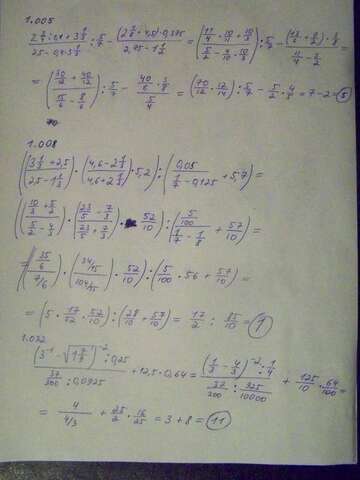 1.005
(2 3/4 : 1,1 + 3 1/3)/(2,5 - 0,4 · 3 1/3) : 5/7 - ((2 1/6 + 4,5) · 0,375)/(2,75 - 1 1/2) = ((11/4 · 10/11 + 10/3)/(5/2 - 4/10 · 10/3)) : 5/7 - ((13/6 + 9/2) · 3/8)/(11/4 - 3/2)
= ((30/12 + 40/12)/(15/6 - 8/6)) : 5/7 - (40/6 · 3/8)/(5/4) = (70/12 · 12/14) : 5/7 - 5/2 · 4/5 = 7 - 2 = 5
1.008
((3 1/3 + 2,5)/(2,5 - 1 1/3) · (4,6 - 2 1/3)/(4,6 + 2 1/3) · 5,2) : (0,05/(1/7 - 0,125) + 5,7) =
((10/3 + 5/2)/(5/2 - 4/3) · (23/5 - 7/3)/(23/5 + 7/3) · 52/10) : ((5/100)/(1/7 - 1/8) + 57/10) =
= ((35/6)/(7/6)) · ((34/15)/(104/15)) · 52/10) : (5/100 · 56 + 57/10) =
= (5 · 17/52 · 52/10) : (28/10 + 57/10) = 17/2 : 85/10 = 1
1.022
((3^-1 - √(1 7/9))^-2 : 0,25)/(37/300 : 0,0925) + 12,5 · 0,64 = ((1/3 - 4/3)^-2 : 1/4)/(37/300 : 925/10000) + 125/10 · 64/100 =
= 4/(4/3) + 25/2 · 16/25 = 3 + 8 = 11